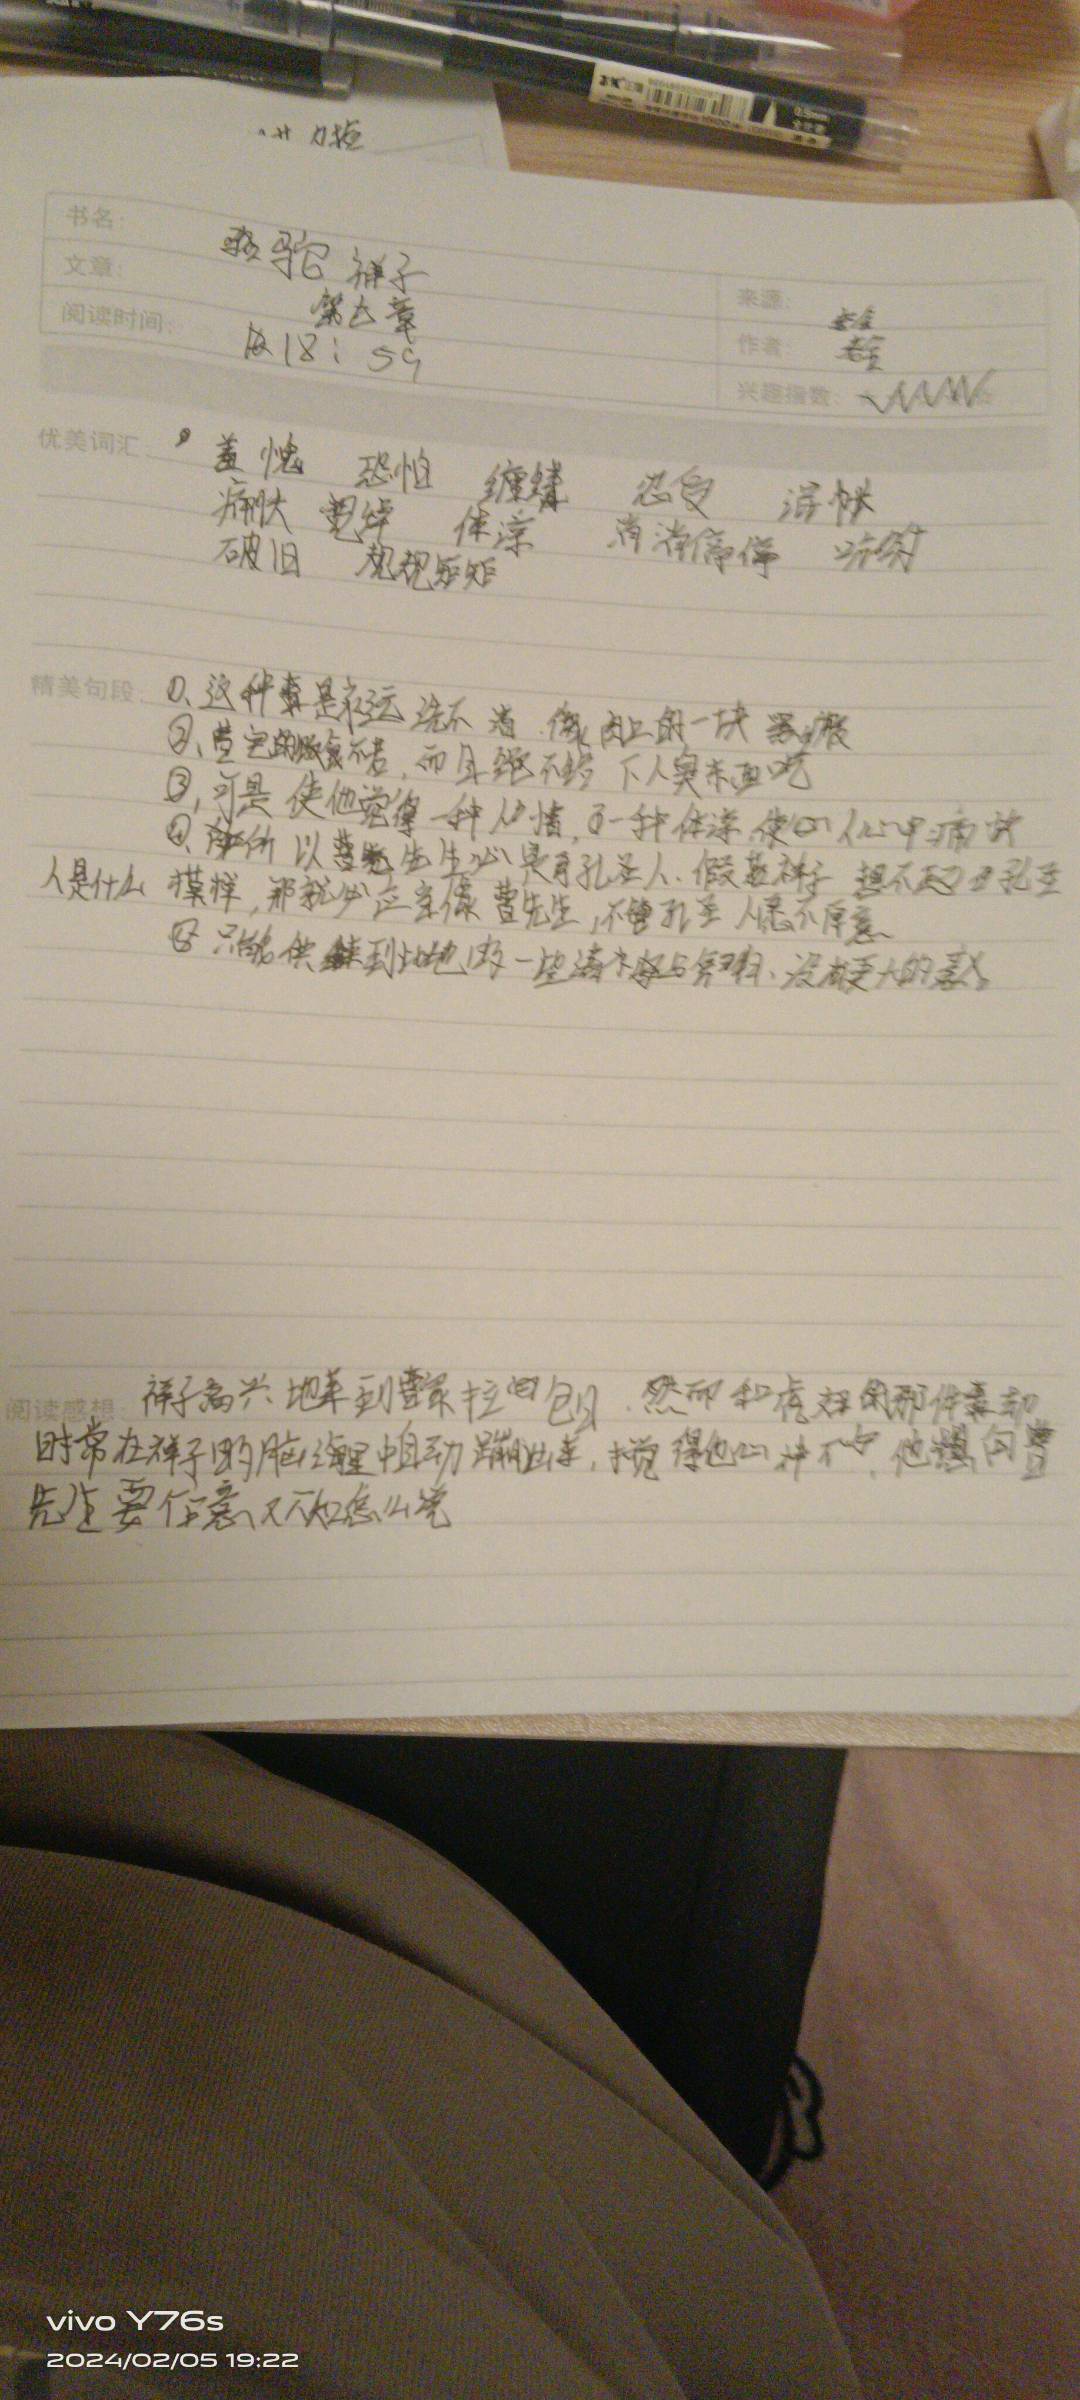 书名: 骆驼祥子
文章: 第七章
阅读时间: 18:59
来源:
作者: 老舍
兴趣指数:
优美词汇: 羞愧 恐怕 缠绕 忍受
痛快 体凉 消消停停 吩咐
破旧 规规矩矩
精美句段: ①、这种事是永远洗不清 像肉上的一块黑瘢
②、曹宅的饭食不苦,而且决不给下人臭东西吃
③、可是使他觉得一种人情,一种体凉,使人心中痛快
④、所以曹先生必是孔圣人、假若祥子想不起孔圣
人是什么 模样,那就必应当像曹先生,不管孔圣人愿不愿意
⑤ 只能供到地做一些清 与 、没有更大的
阅读感想: 祥子高兴地来到曹家拉包月.然而和虎妞的那件事却
时常在祥子的脑海里中自动蹦出来,搅得他心神不宁,他想向曹
先生要个主意、又不知怎么说
vivo Y76s
2024/02/05 19:22